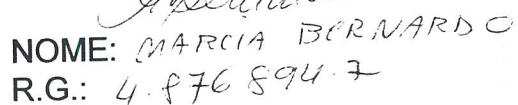 NOME: MARCIA BERNARDO
R.G.: 4.876894.7